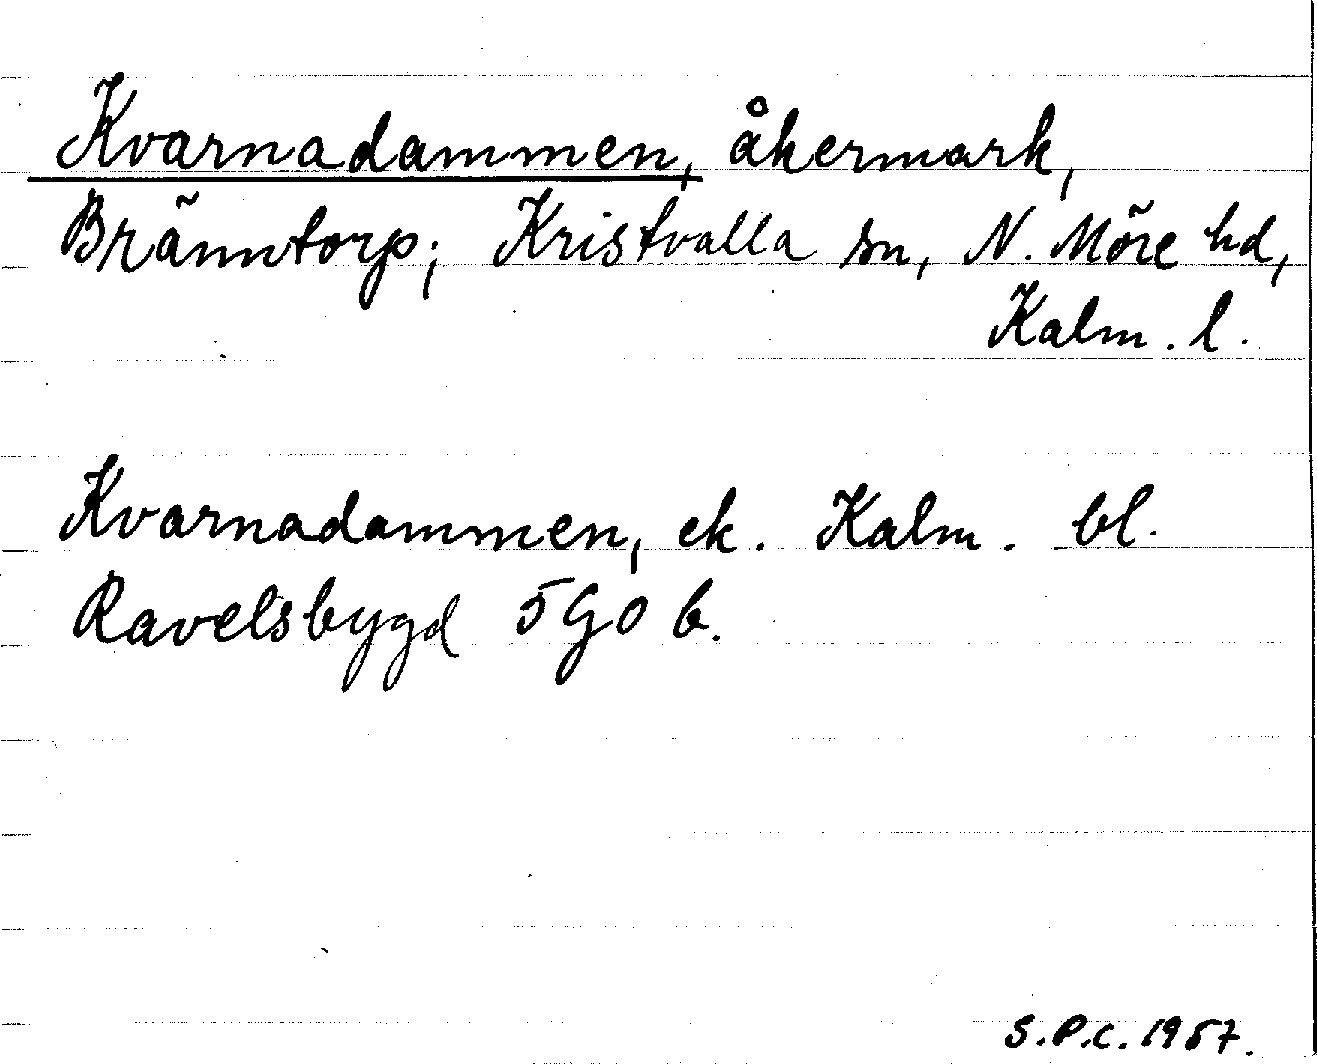 Kvarnadammen, åkermark,
Bränntorp; Kristvalla sn, N. Möre hd,
Kalm. l.
Kvarnadammen, ek. Kalm. bl.
Ravelsbygd 5G0 b.
S.P.C. 1957.